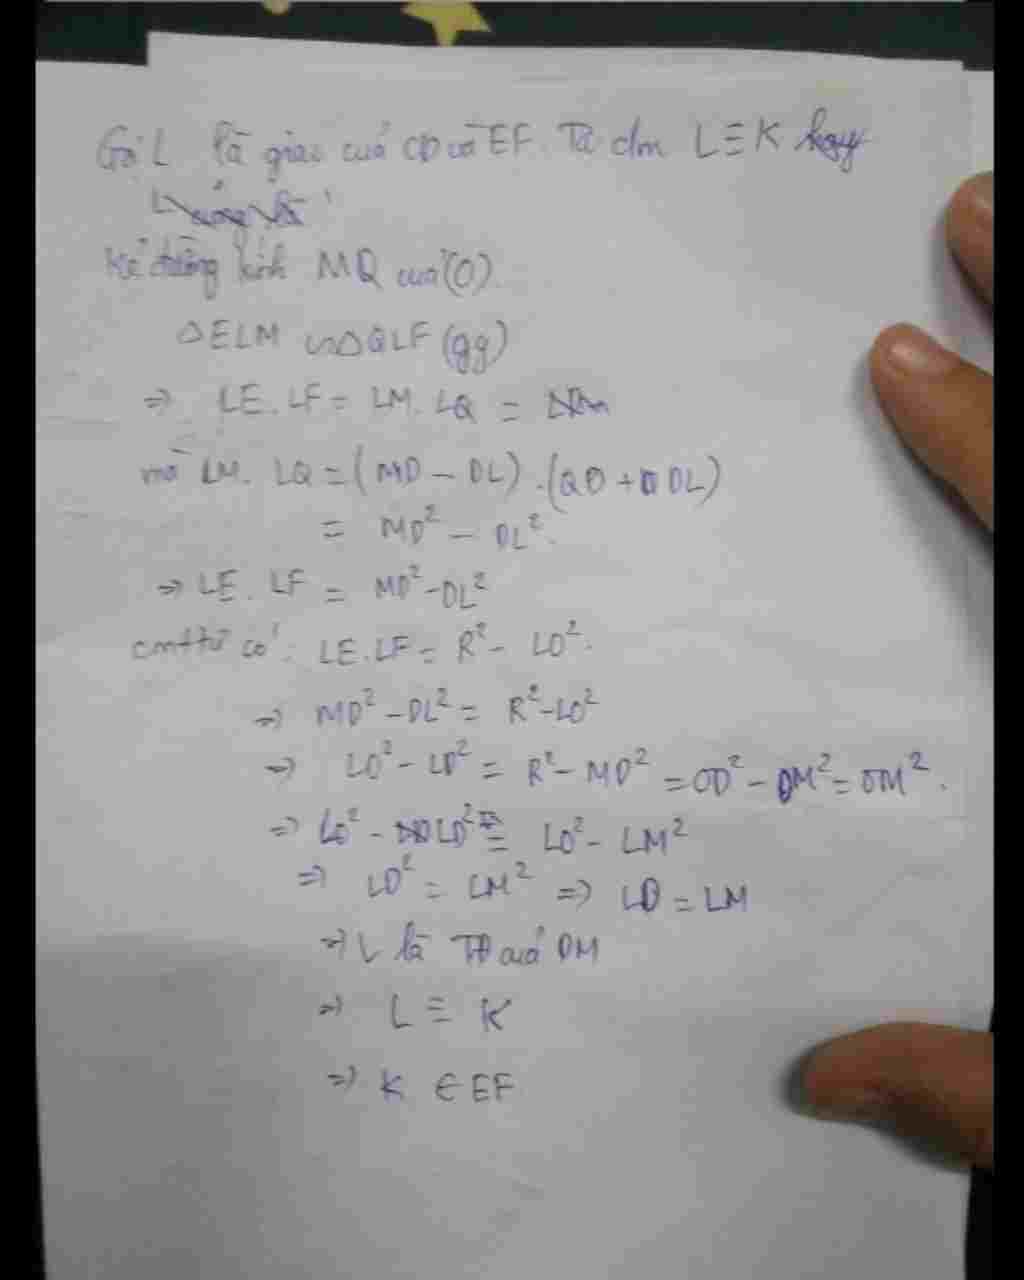 Gọi L là giao của CD và EF. Ta cm L ≡ K hay
Kẻ đường kính MQ của (O)
△ELM ∽ △QLF (gg)
⇒ LE.LF = LM.LQ =
mà LM.LQ = (MD − DL).(QD + DL)
= MD² − DL².
⇒ LE.LF = MD² − DL²
cmttự có: LE.LF = R² − LO².
⇒ MD² − DL² = R² − LO²
⇒ LO² − LD² = R² − MD² = OD² − DM² = OM².
⇒ LO² − LD² = LO² − LM²
⇒ LD² = LM² ⇒ LD = LM
⇒ L là TĐ của DM
⇒ L ≡ K
⇒ K ∈ EF